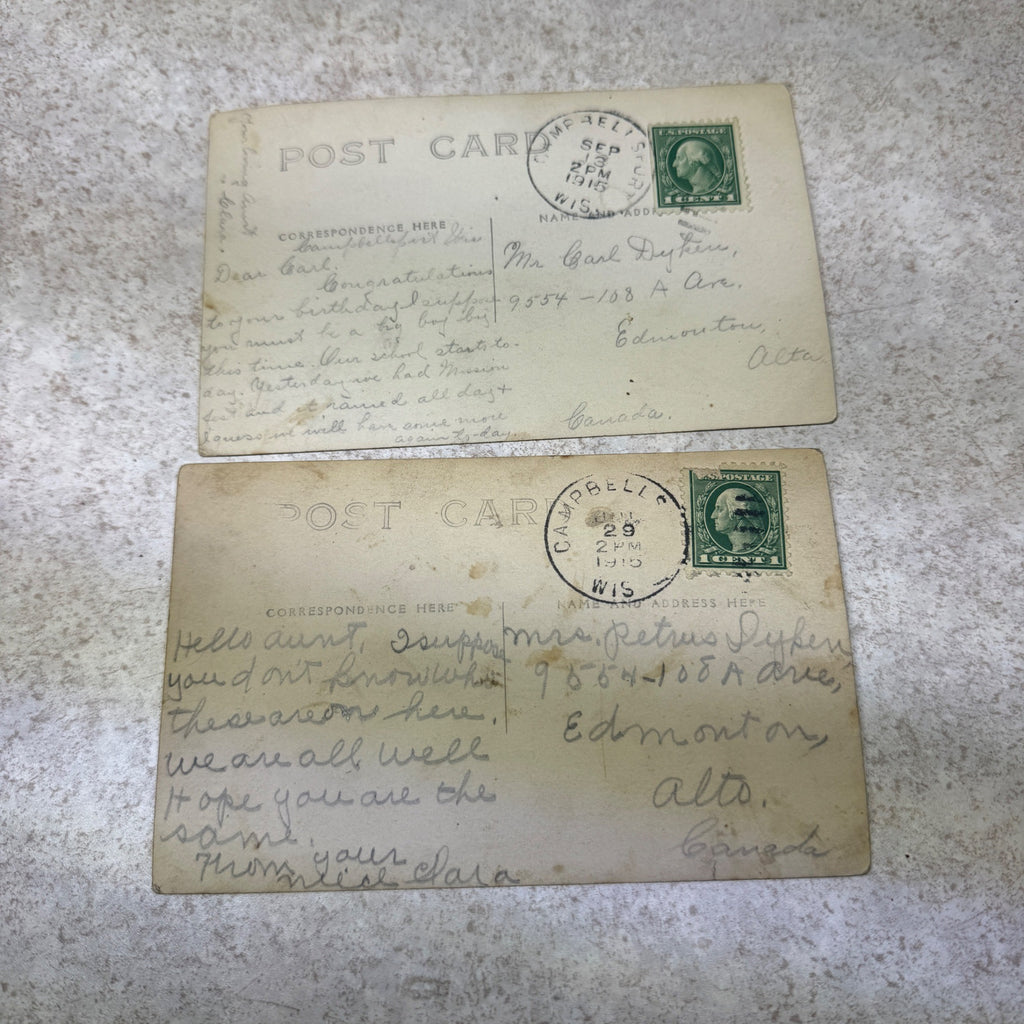 POST CARD
CAMPBELLSPORT
SEP
13
2 PM
1915
WIS.
U.S. POSTAGE
1 CENT 1
CORRESPONDENCE HERE
NAME AND ADDR
Campbellsport Wis
Dear Carl.
Congratulations
to your birthday I suppose
you must be a big boy by
this time. Our school starts to-
day. Yesterday we had Mission
fest and it rained all day +
I guess we will have some more
again to-day.
Your Aunt
Mr Carl Dyken,
9554 - 108 A Ave.
Edmonton,
Alta
Canada.
POST CAR
CAMPBELLS
29
2 PM
1915
WIS
U.S. POSTAGE
1 CENT 1
CORRESPONDENCE HERE
NAME AND ADDRESS HERE
Hello aunt, I suppose
you dont know who
these are on here.
we are all well
Hope you are the
same.
From your
neice Clara
Mrs. Petrus Dyken
9554-108 A Ave,
Edmonton,
Alto.
Canada